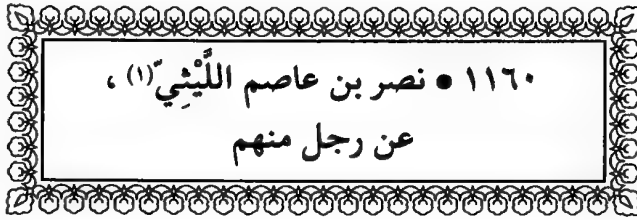 ١١٦٠ • نصر بن عاصم اللَّيْثِيّ(١) ،
عن رجل منهم